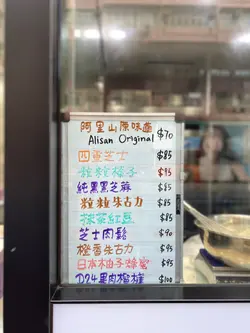 阿里山原味
Alisan Original $70
四重芝士 $85
粒粒橘子 $95
純黑黑芝麻 $85
粒粒朱古力 $85
抹茶紅豆 $85
芝士肉鬆 $90
橙香朱古力 $95
日本柚子蜂蜜 $95
D24果肉榴槤 $100